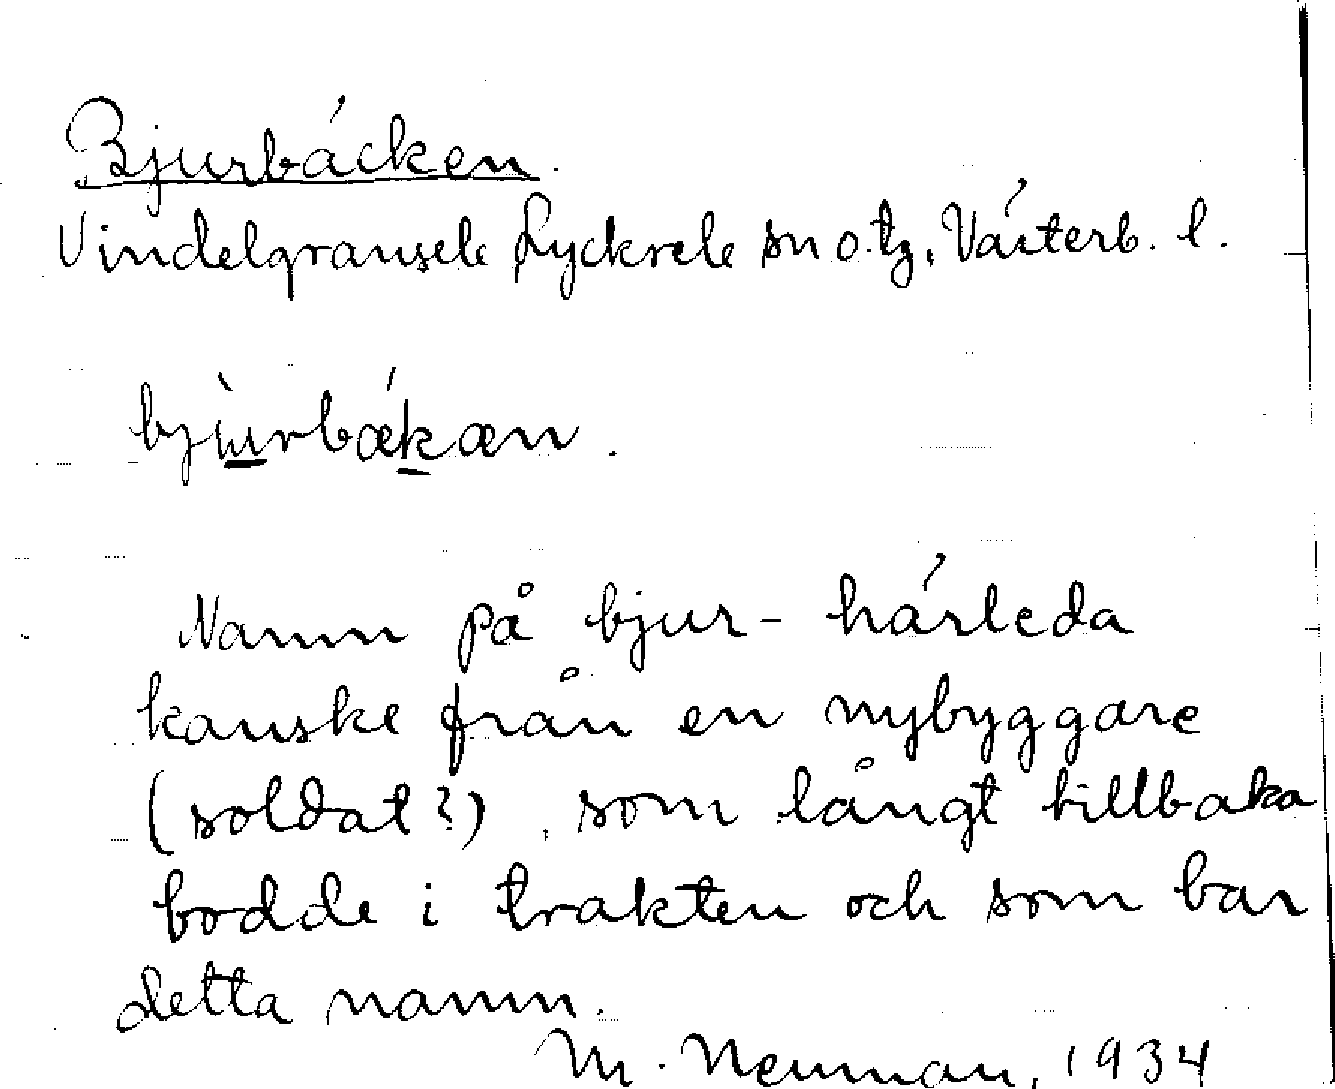 Bjurbäcken.
Vindelgransele Lycksele sn o. tg, Västerb. l.
bjùurbǽkæn.
Namn på bjur- härleda
kanske från en nybyggare
(soldat?), som långt tillbaka
bodde i trakten och som bar
detta namn.
M. Neuman, 1934